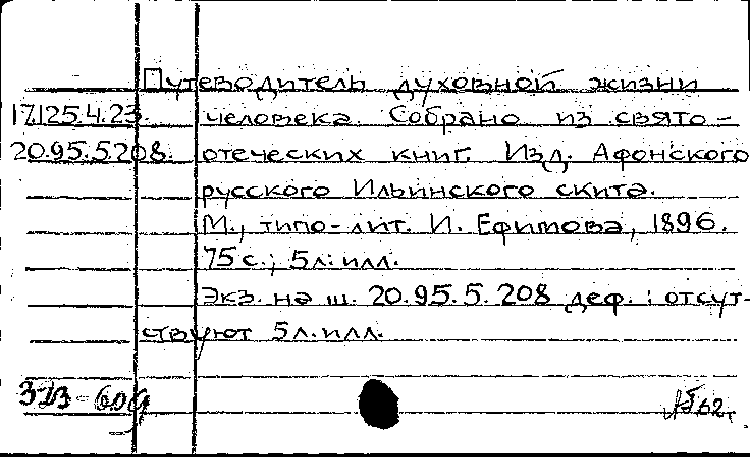 Путеводитель духовной жизни
17.125.4.23. человека. Собрано из свято-
20.95.5.208. отеческих книг. Изд. Афонского
русского Ильинского скита.
М., типо-лит. И. Ефимова, 1896.
75 с.; 5 л. илл.
Экз. на ш. 20.95.5.208 деф.: отсут-
ствуют 5 л. илл.